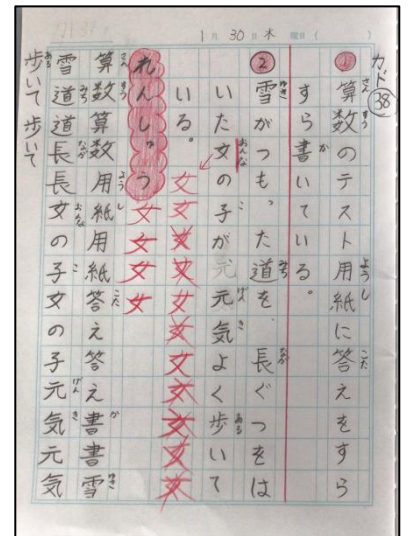 1月30日木曜日( )
カド㊳
① 算数のテスト用紙に答えをすら
すら書いている。
② 雪がつもった道を、長ぐつをは
いた女の子が元気よく歩いて
いる。女女女女女女女女女女女
れんしゅう女女女女
算数算数用紙用紙答え答え書書雪
雪道道長長女の子女の子元気元気
歩いて歩いて